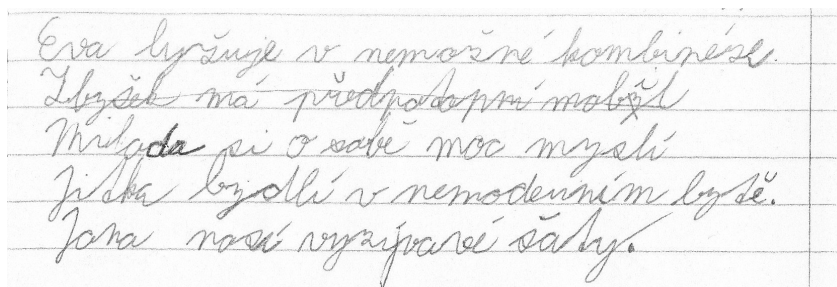 Eva lyžuje v nemožné kombinéze.
Zbyšek má předpotopní mobil
Milada si o sobě moc myslí
Jitka bydlí v nemoderním bytě.
Jana nosí vyzývavé šaty.